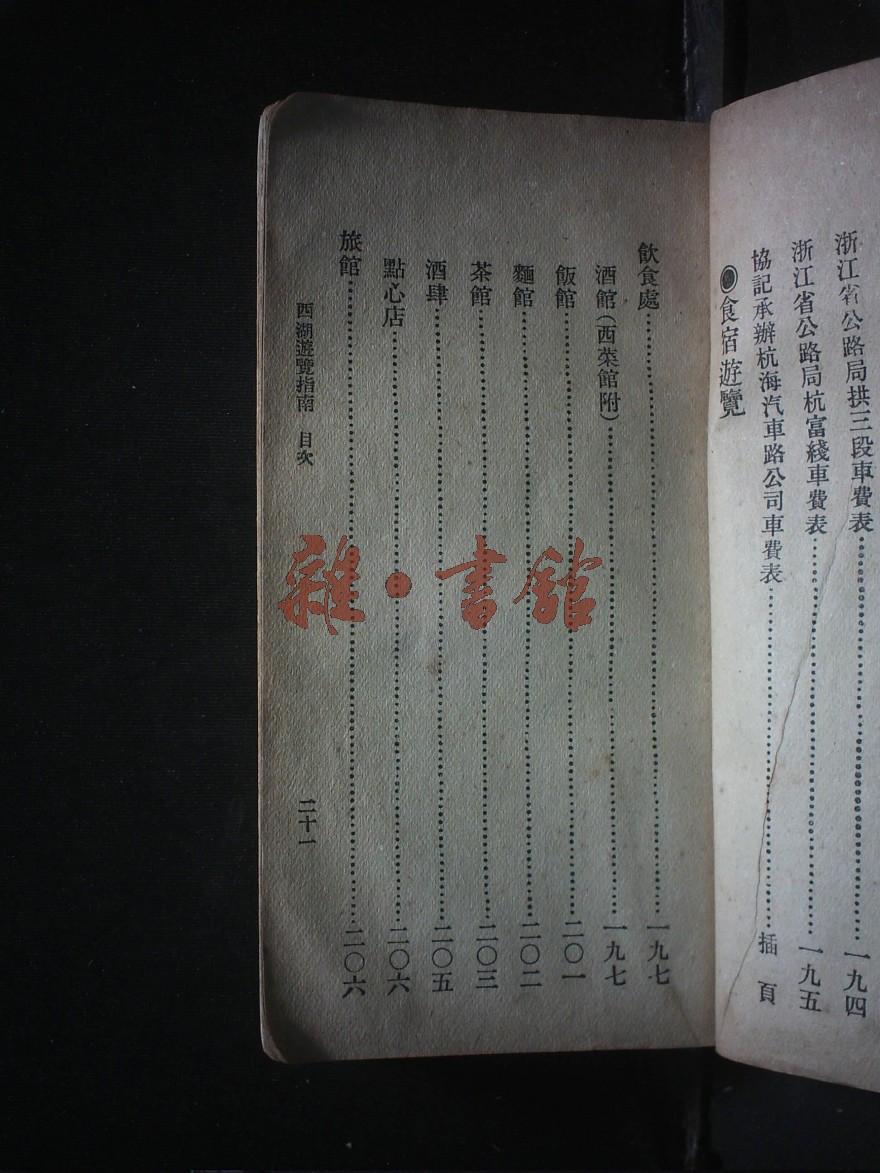 浙江省公路局拱三段車費表……一九四
浙江省公路局杭富綫車費表……一九五
協記承辦杭海汽車路公司車費表……插頁
◉食宿遊覽
飲食處……一九七
酒館(西菜館附)……一九七
飯館……二〇一
麵館……二〇二
茶館……二〇三
酒肆……二〇五
點心店……二〇六
旅館……二〇六
西湖遊覽指南 目次 二十一
雜·書館